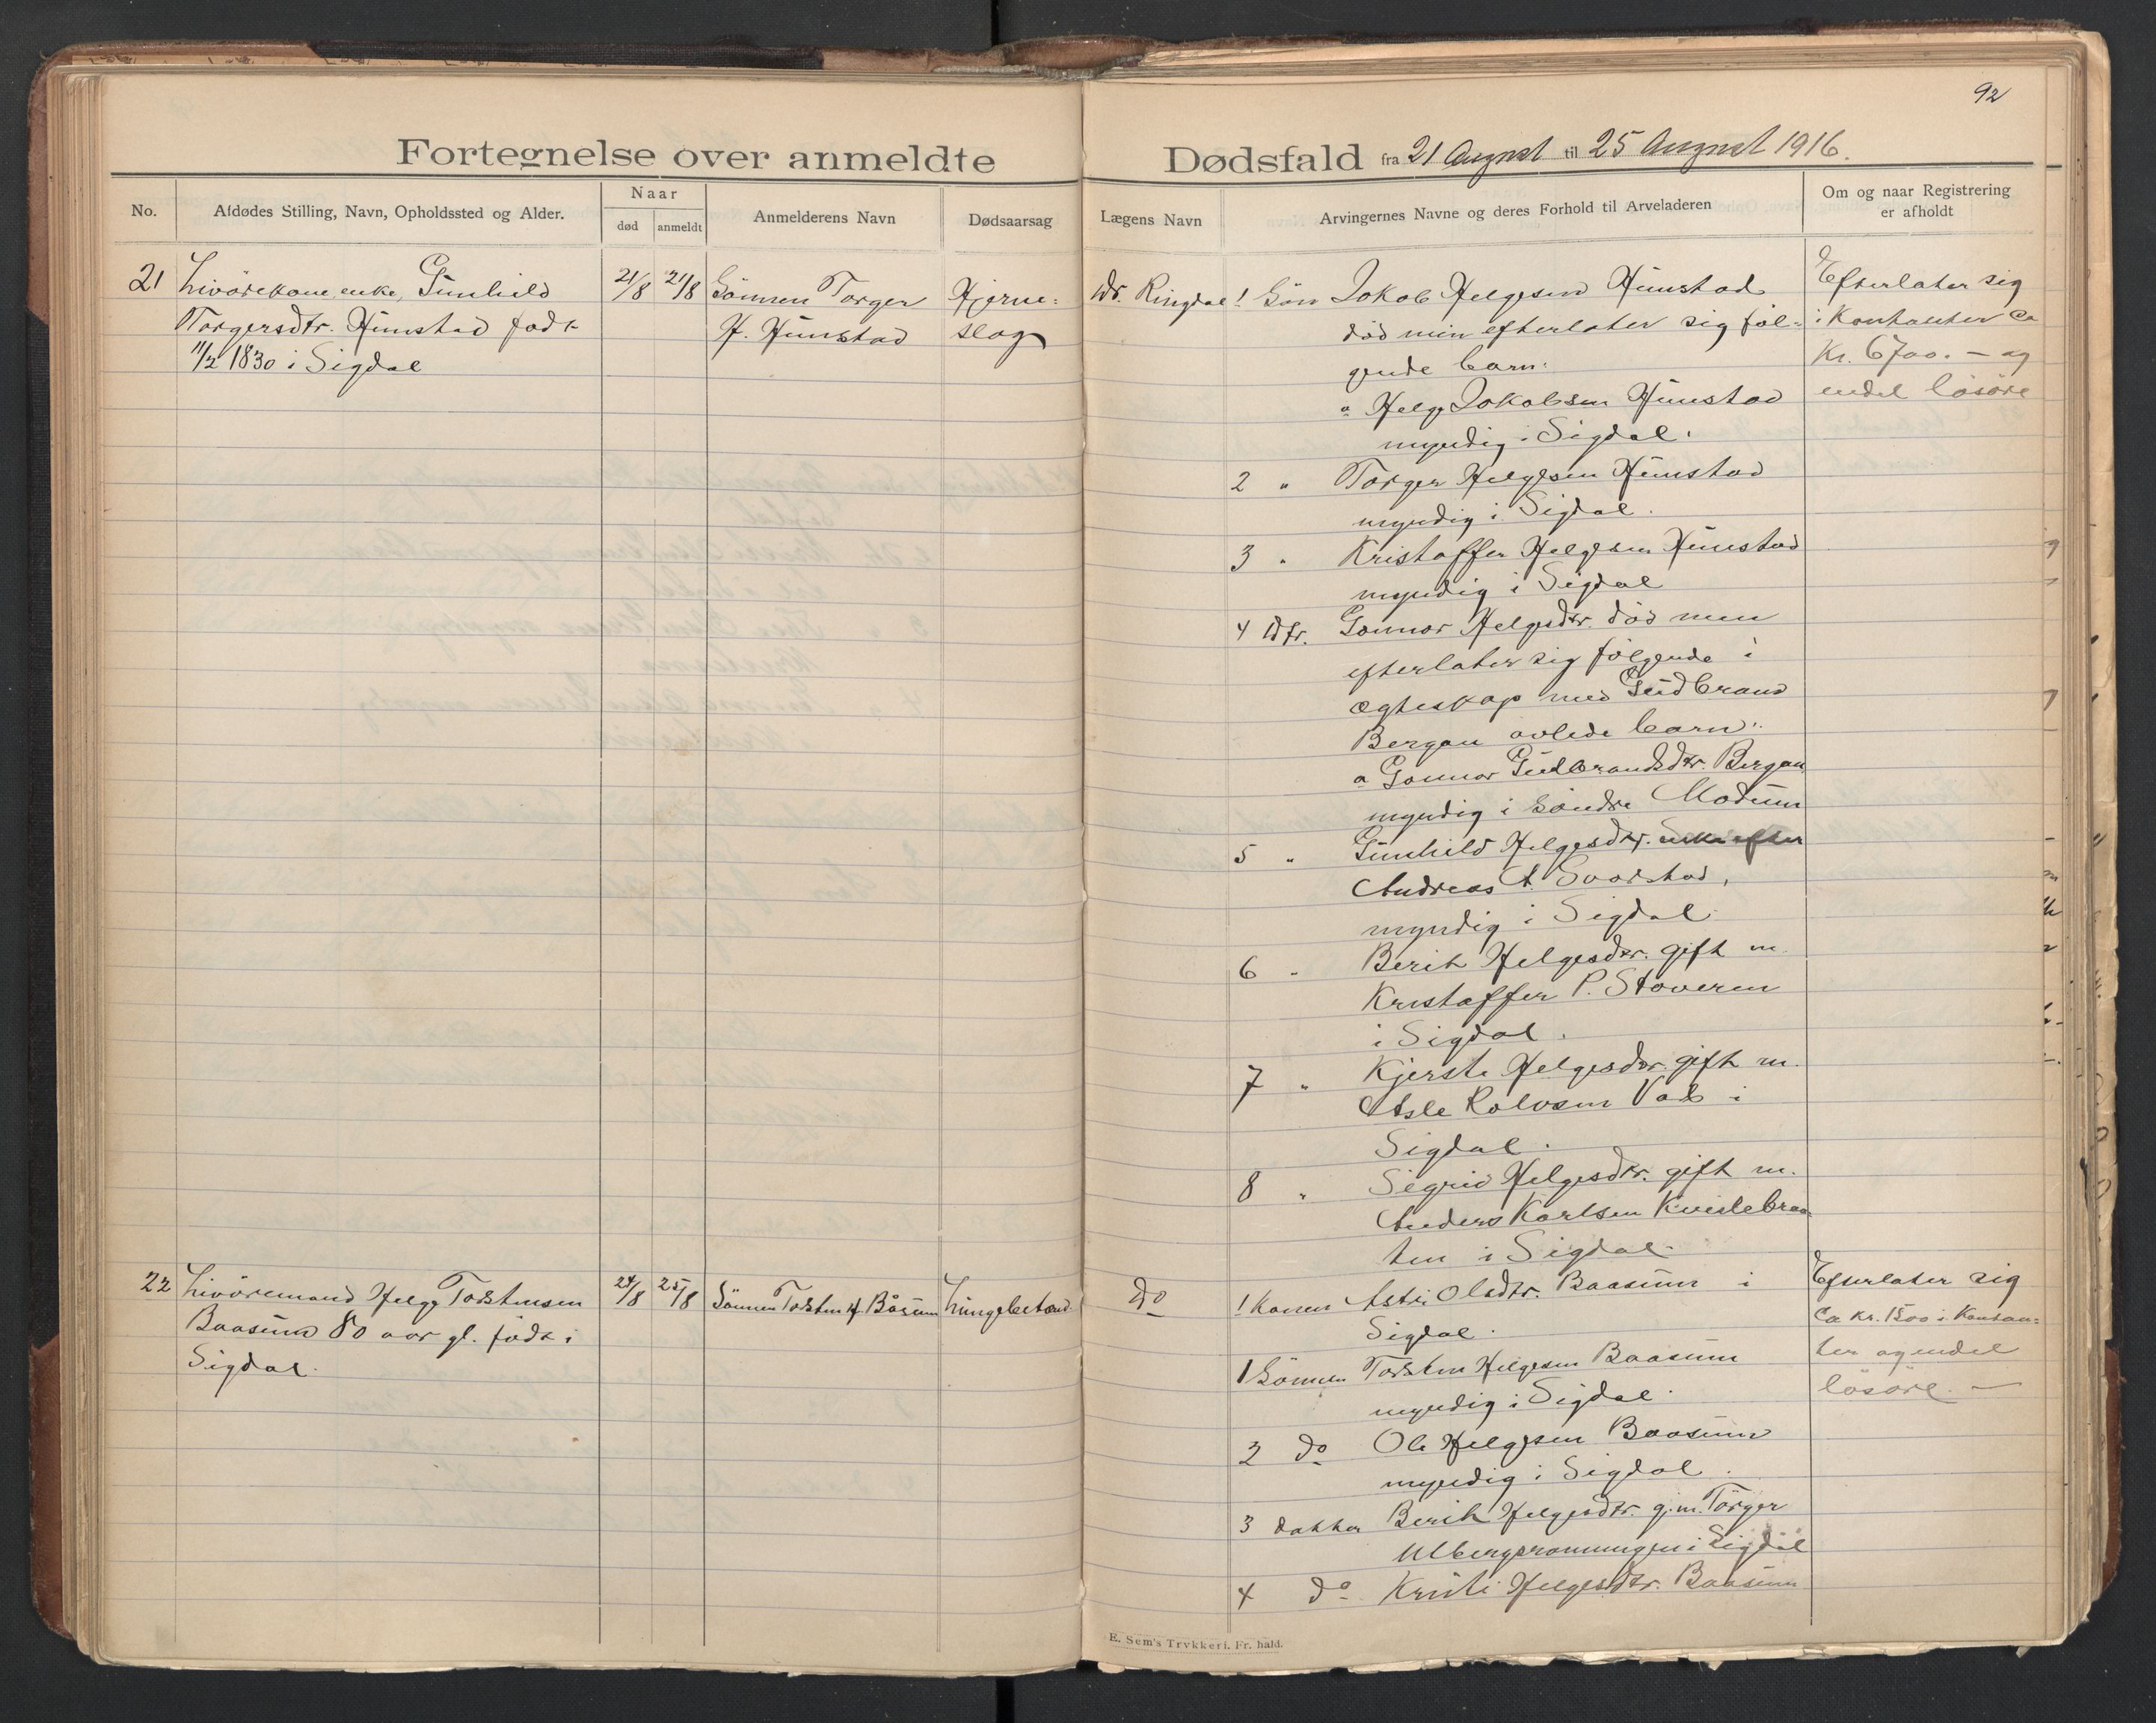 92
Fortegnelse over anmeldte Dødsfald fra 21 August til 25 August 1916.
No.
Afdødes Stilling, Navn, Opholdssted og Alder.
Naar
død
anmeldt
Anmelderens Navn
Dødsaarsag
Lægens Navn
Arvingernes Navne og deres Forhold til Arveladeren
Om og naar Registrering
er afholdt
21
Livörekone, enke, Gunhild
Torgersdtr. Hunstad födt
11/2 1830 i Sigdal
21/8
21/8
Sönnen Torger
H. Hunstad
Hjerne-
slag
Dr. Ringdal
1 Sön Jokob Helgesen Hunstad
död men efterlater sig föl-
gende barn:
a Helge Jokobsen Hunstad
myndig i Sigdal.
2 " Torger Helgesen Hunstad
myndig i Sigdal.
3 " Kristoffer Helgesen Hunstad
myndig i Sigdal
4 Dtr. Gonnor Helgesdtr. död men
efterlater sig följgende i
egteskap med Gudbrand
Bergan avlede barn:
a Gonnor Gudbrandsdtr. Bergan
myndig i Söndre Modum
5 " Gunhild Helgesdtr. enke efter
Andreas A. Svarstad,
myndig i Sigdal
6 " Berit Helgesdtr. gift m.
Kristoffer P. Stoveren
i Sigdal.
7 " Kjersti Helgesdtr. gift m.
Asle Rolvsen Vad i
Sigdal.
8 " Sigrid Helgesdtr. gift m.
Anders Karlsen Kvislebraa-
ten i Sigdal.
Efterlater sig
i Kontanter ca
Kr. 6700.- og
endel lösöre
22
Livöremand Helge Torstensen
Baasum 80 aar gl. födt i
Sigdal.
24/8
25/8
Sönnen Torsten H. Båsum
Lungebetænd.
Do
1 Konen Astri Olsdtr. Baasum i
Sigdal.
1 Sönnen Torsten Helgesen Baasum
myndig i Sigdal.
2 do Ole Helgesen Baasum
myndig i Sigdal.
3 datter Berit Helgesdtr. g. m. Torger
Ulbergsrønningen i Sigdal
4 do Kristi Helgesdtr. Baasum
Efterlater sig
ca kr. 1500 i Kontan-
ter og endel
lösöre. —
E. Sem's Trykkeri, Fr. hald.